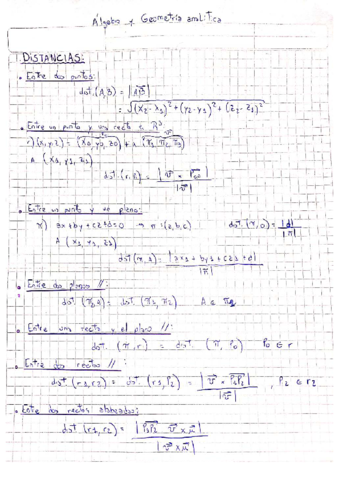 Álgebra y Geometría analítica
DISTANCIAS:
• Entre dos puntos:
dist.(A,B) = |AB|
= √(x2 - x1)² + (y2 - y1)² + (z2 - z1)²
• Entre un punto y una recta e R³
r) (x,y,z) = (x0, y0, z0) +
A (x1, y1, z1)
dist.(r,A) =
|v|
• Entre un punto y el plano:
π) ax + by + cz + d = 0 → n:(a,b,c) dist.(π,0) = |d|
|n|
A (x1, y1, z1)
dist(π,A) = |ax1 + by1 + cz1 + d|
|n|
• Entre dos planos //:
dist. = dist.
• Entre una recta y el plano //:
dist. (π, r) = dist. (π, P0) P0 ∈ r
• Entre dos rectas //:
dist. (r1, r2) = dist. (r1, P2) = |v × P1P2| , P2 ∈ r2
|v|
• Entre dos rectas alabeadas:
dist. (r1, r2) = |P1P2 · v × u|
|v × u|